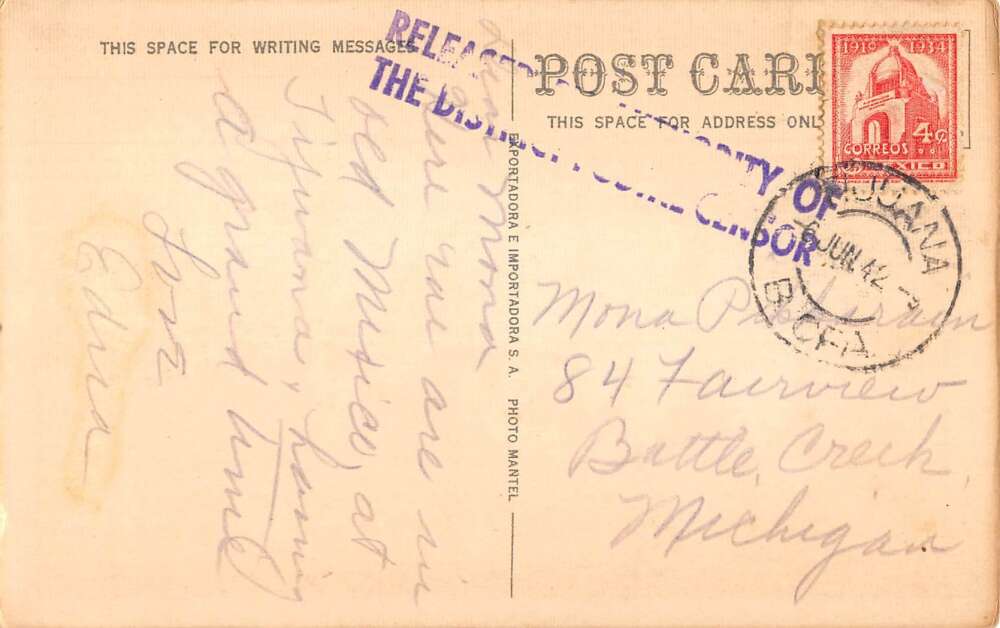 THIS SPACE FOR WRITING MESSAGES
Mona
Here we are in
old Mexico, at
Tijuana, having
a grand time
Love
Edna
EXPORTADORA E IMPORTADORA S. A. PHOTO MANTEL
RELEASED BY AUTHORITY OF
THE DISTRICT POSTAL CENSOR
POST CARD
THIS SPACE FOR ADDRESS ONLY
1910 1934
4¢
CORREOS
MEXICO
TIJUANA
6 JUN 42
B. CFA.
Mona
84 Fairview
Battle Creek
Michigan